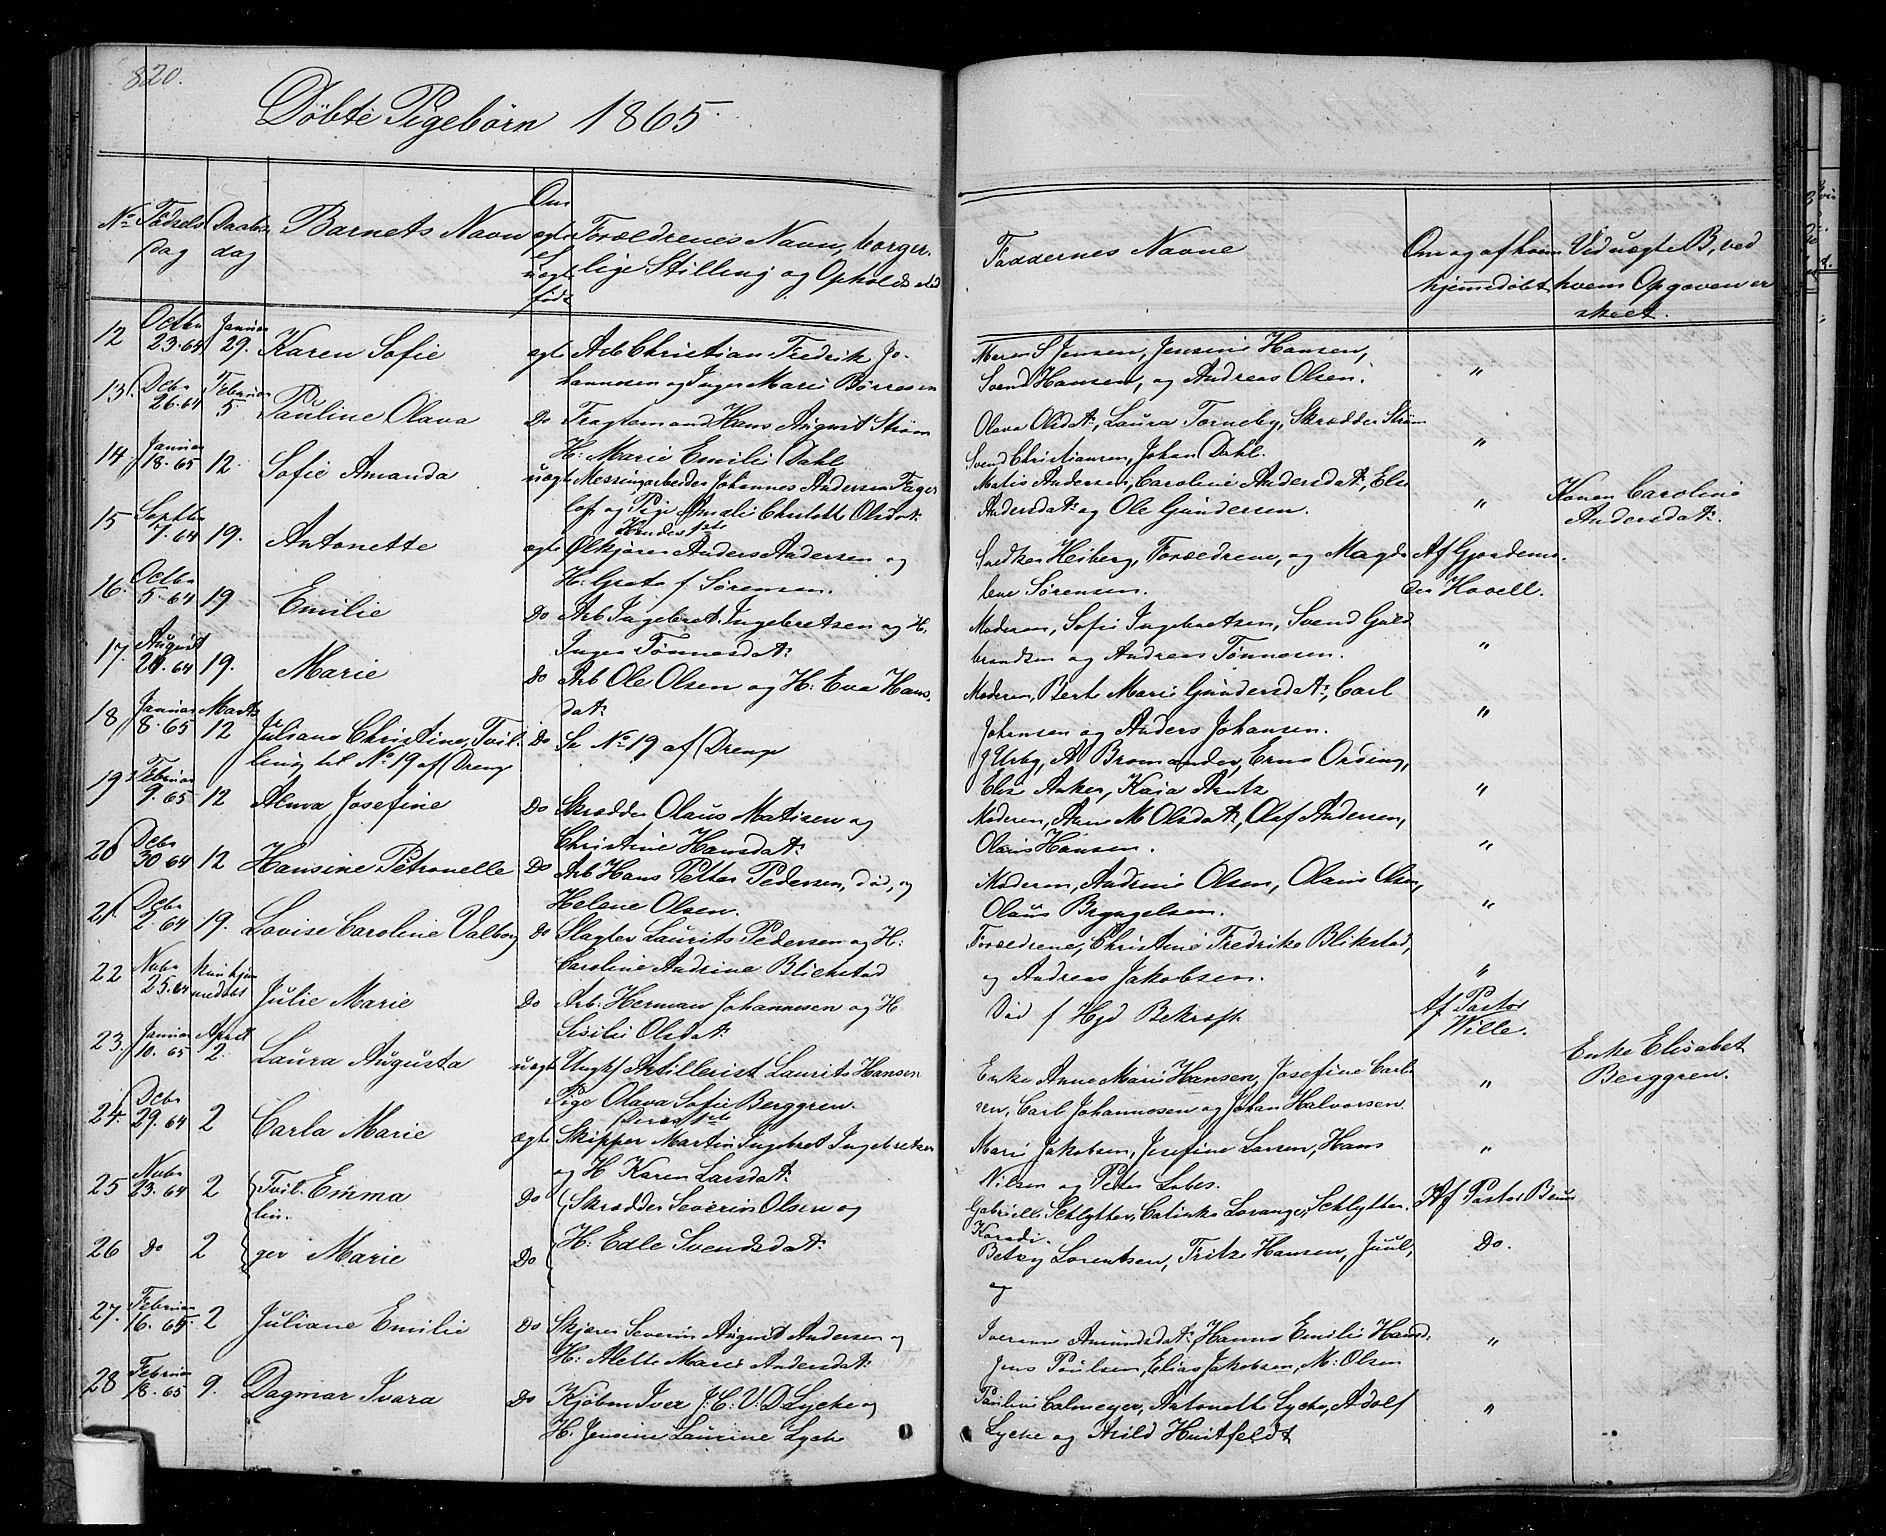 820.
Döbte Pigebörn 1865.
No Födsels dag Daabs dag Barnets Navn Om ægte el uægte född Forældrenes Navn, borger-
lige Stilling og Opholdssted
Faddernes Navne Om og af hvem hjemmedöbt Ved uægte B, ved hvem Opgaven er skeet.
12 Octbr 23.64 Januar 29. Karen Sofie ægte Arb Christian Fredrik Jo-
hannesen og Inger Marie Börresen
Maren S Jensen, Jensine Hansen,
Svend Hansen, og Andreas Olsen. "
13. Debr 26.64 Februar 5. Pauline Olava Do Fragtemand Hans August Ström
H: Marie Emilie Dahl
Olava Olsdat:, Laura Torneby, Skrædder Ström
Svend Christiansen, Johan Dahl. "
14. Januar 18.65 12. Sofie Amanda uægte Messingarbeider Johannes Andersen Fager
lof og Pige Amalie Charlotte Olsdat:
Hendes 1ste
Matis Andersen, Caroline Andersdat:, Else
Andersdat: og Ole Gundersen. " Konen Caroline
Andersdat:
15 Septbr 7.64 19. Antonette ægte Ölkjörer Anders Andersen og
H: Grete f. Sörensen.
Heiberg, Forældrene, og Magda
lene Sörensen. Af Gjordemo-
der Hovell.
16. Octbr 5.64 19 Emilie Do Arb Ingebret Ingebretsen og H.
Inger Tönnesdat:
Moderen, Sofie Ingebretsen, Svend Guld
brandsen og Andreas Tönnesen. "
17. August 20.64 19. Marie Do Arb Ole Olsen og H: Eva Hans-
dat:
Moderen, Berte Marie Gundersdat:, Carl
Johansen og Anders Johansen. "
18 Januar 8.65 Marts 12 Juliane Christine, Tvil-
ling til No 19 af Drenge Do Se No 19 af Drenge
J Urby, A Bromander, Erns Orsing,
Elise Anker, Kaia Arntz "
19 Februar 9.65 12 Alma Josefine Do Skrædder Olaus Matisen og
Christine Hansdat:
Moderen, Anne M Olsdat:, Olaf Andersen,
Olaus Hansen. "
20 Debr 30 64 12 Hansine Petronelle Do Arb Hans Petter Pedersen, död, og
Helene Olsen.
Moderen, Andrine Olsen, Olaus Olsen,
Olaus Bryngelsen. "
21. Debr 2.64 19. Lovise Caroline Valborg Do Slagter Laurits Pedersen og H:
Caroline Andrine Blichstad
Forældrene, Christine Fredrike Blikstad,
og Andreas Jakobsen. "
22 Nvbr 25.64 kun hjem
medöbt Julie Marie Do Arb: Herman Johannesen og H
Sisilie Olsdat:
Död f Hjd Bekræft Af Pastor
Wille.
23. Januar 10.65 April 2. Laura Augusta uægte Ungkf Artillerist Laurits Hansen
Pige Olava Sofie Berggren.
Deres 1ste
Enke Anne Marie Hansen, Josefine Carl
sen, Carl Johannesen og Johan Halvorsen. " Enke Elisabet
Berggren.
24. Debr 29.64 2 Carla Marie ægte Skipper Martin Ingebret Ingebretsen
og H Karen Larsdat:
Marie Jakobsen, Josefine Larsen, Hans
Nilsen og Peter Lobes. "
25 Nvbr 23.64 2 Tvil- Emma
lin- Do Skrædder Severin Olsen og
H: Edle Svendsdat:
Gabrielle Schlytter, Catinka Lovange, Schlytter. Af Pastor Bruun
26 Do 2 ger Marie Do
Betsy Lorentsen, Fritze Hansen, Juul, Do.
og
27. Februar 16.65. 2 Juliane Emilie Do Skjærer Severin August Andersen og
H: Alette Marie Andersdat:
Iverine Amundsdat: Hanna Emilie Hansd.
Jens Poulsen, Elias Jakobsen, M: Olsen "
28 Februar 18.65 9. Dagmar Ivara Do Kjöbm Iver J: C: V: D Lyche og
H. Jensine Laurine Lyche
Pauline Calmeyer, Antonette Lyche, Adolf
Lyche og Arild Huitfeldt "